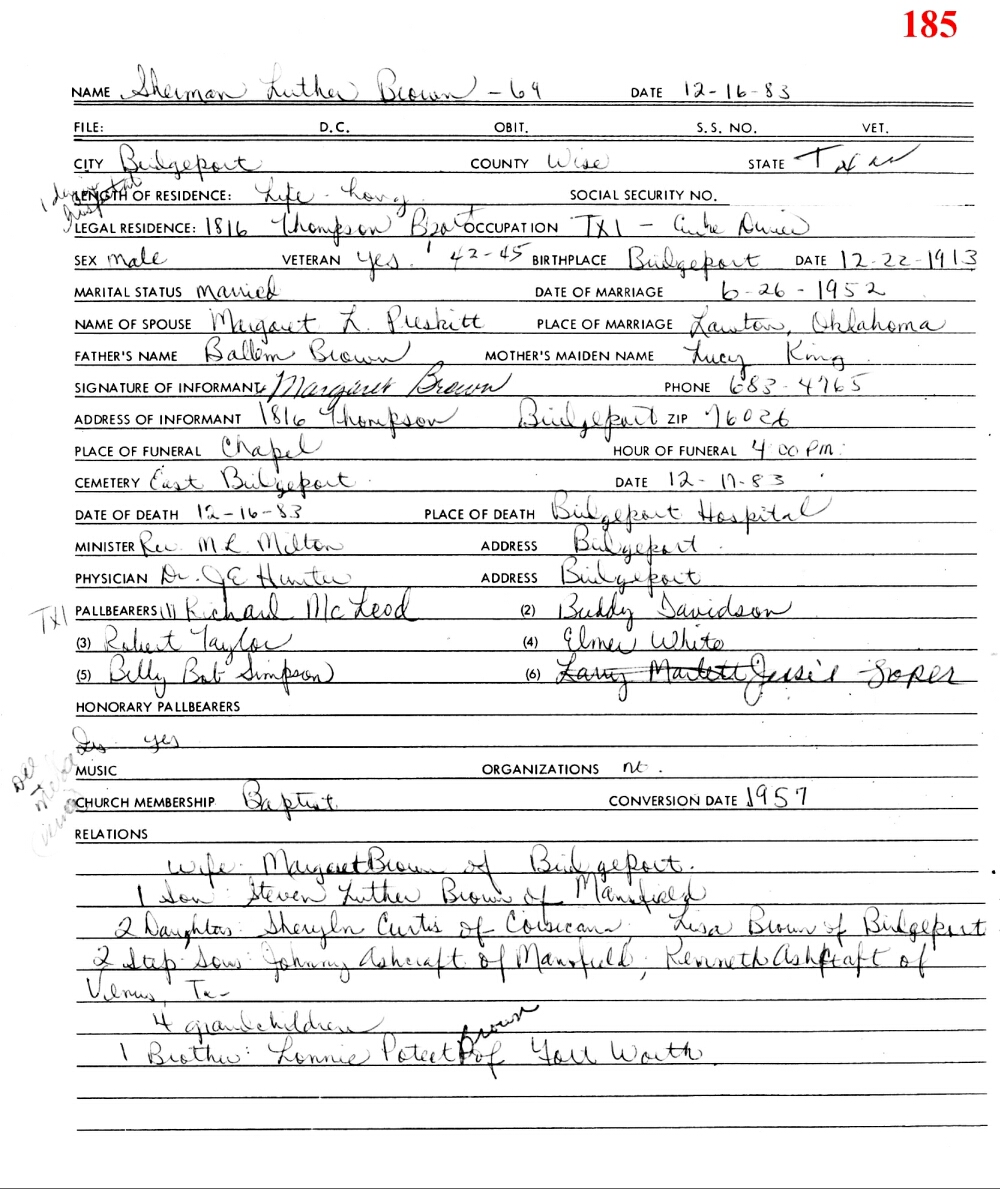 185
NAME Sherman Luther Brown - 69 DATE 12-16-83
FILE: D.C. OBIT. S.S. NO. VET.
CITY Bridgeport COUNTY Wise STATE Texas
1 day in hospital
LENGTH OF RESIDENCE: Life - Long SOCIAL SECURITY NO.
LEGAL RESIDENCE: 1816 Thompson Bpt OCCUPATION TXI - Driver
SEX Male VETERAN yes. '42-45 BIRTHPLACE Bridgeport DATE 12-22-1913
MARITAL STATUS Married DATE OF MARRIAGE 6-26-1952
NAME OF SPOUSE Margaret L. Preskitt PLACE OF MARRIAGE Lawton, Oklahoma
FATHER'S NAME Ballem Brown MOTHER'S MAIDEN NAME Lucy King
SIGNATURE OF INFORMANT Margaret Brown PHONE 683-4765
ADDRESS OF INFORMANT 1816 Thompson Bridgeport ZIP 76026
PLACE OF FUNERAL Chapel HOUR OF FUNERAL 4:00 PM.
CEMETERY East Bridgeport DATE 12-17-83
DATE OF DEATH 12-16-83 PLACE OF DEATH Bridgeport Hospital
MINISTER Rev. M L Milton ADDRESS Bridgeport
PHYSICIAN Dr. JE Hunter ADDRESS Bridgeport
TXI PALLBEARERS (1) Richard McLeod (2) Buddy Davidson
(3) Robert Taylor (4) Elmer White
(5) Billy Bob Simpson (6) Larry Martett Jessie Soper
HONORARY PALLBEARERS
yes
MUSIC ORGANIZATIONS no.
CHURCH MEMBERSHIP Baptist CONVERSION DATE 1957
RELATIONS
Wife: Margaret Brown of Bridgeport.
1 Son: Steven Luther Brown of Mansfield
2 Daughters: Sheryln Curtis of Corsicana, Lisa Brown of Bridgeport
2 Step Sons: Johnny Ashcraft of Mansfield; Kenneth Ashcraft of
Venus, Tx-
4 grandchildren
1 Brother: Lonnie Poteet Brown of Fort Worth